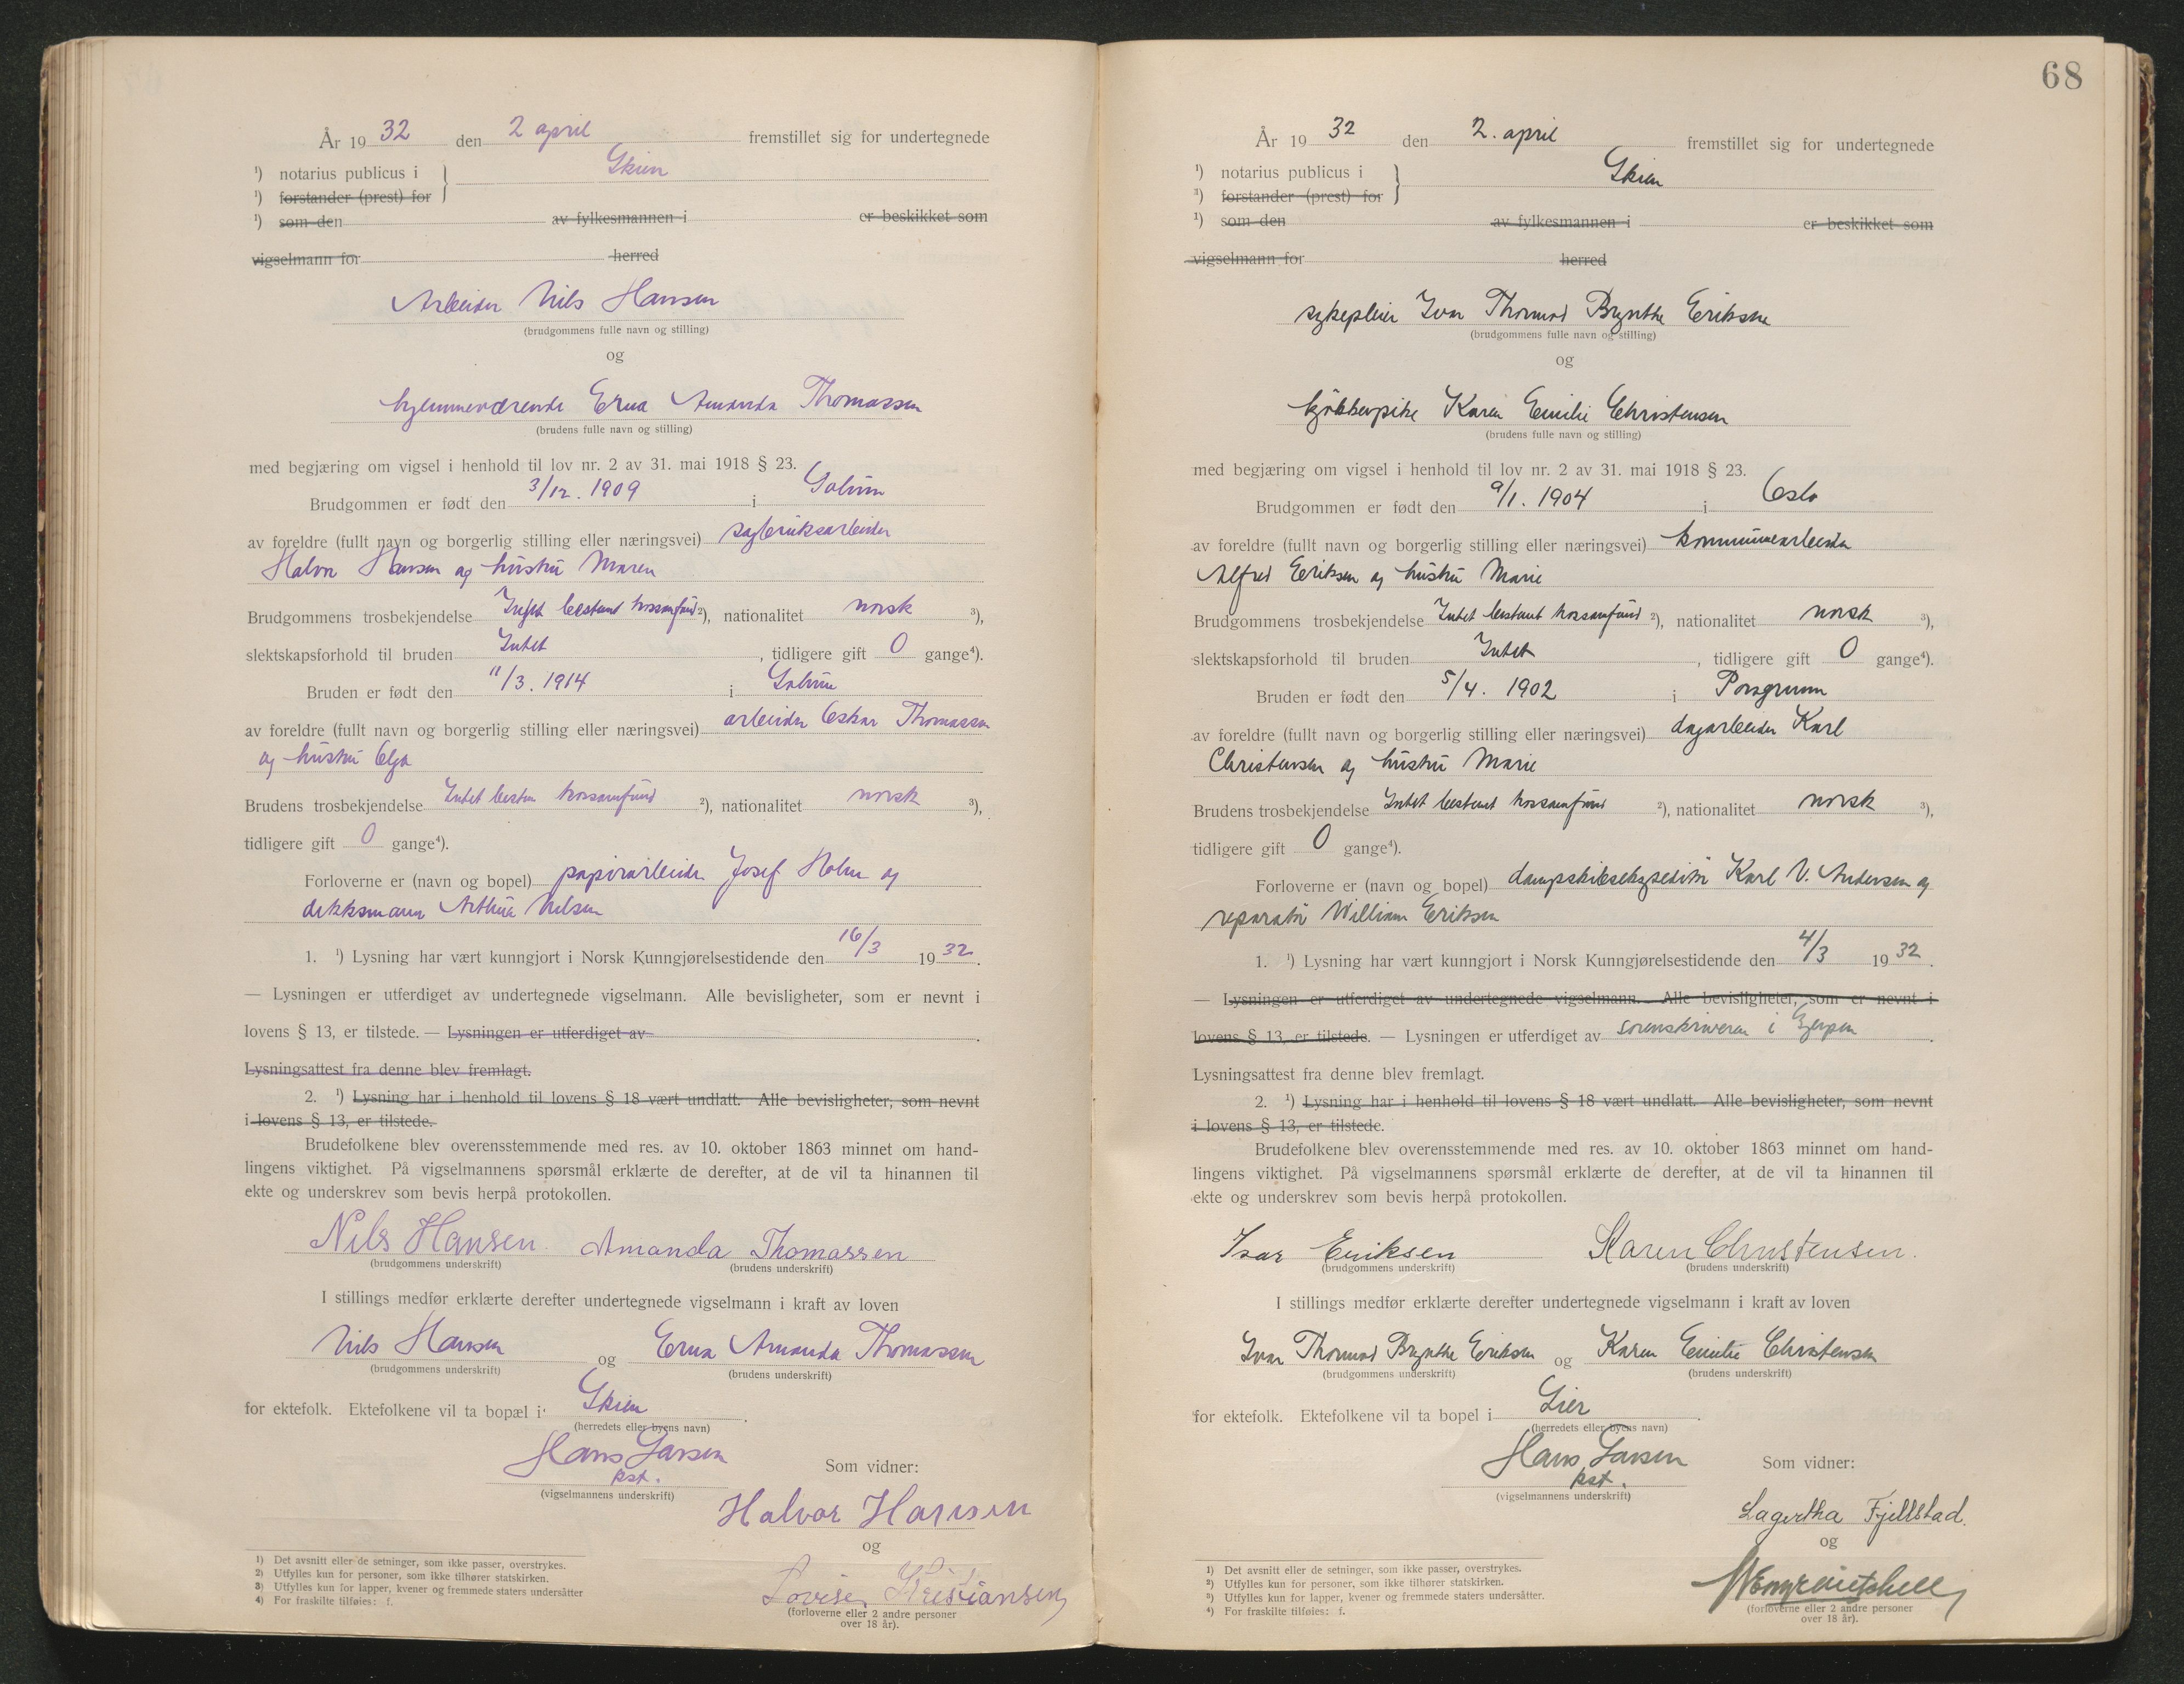 År 19 32 den 2 april fremstillet sig for undertegnede
¹) notarius publicus i Skien
¹) forstander (prest) for
¹) som den av fylkesmannen i er beskikket som
vigselmann for herred
Arbeider Nils Hansen
(brudgommens fulle navn og stilling)
og
hjemmeværende Erna Amanda Thomassen
(brudens fulle navn og stilling)
med begjæring om vigsel i henhold til lov nr. 2 av 31. mai 1918 § 23.
Brudgommen er født den 3/12. 1909 i Solum
av foreldre (fullt navn og borgerlig stilling eller næringsvei) sagbruksarbeider
Halvor Hansen og hustru Maren
Brudgommens trosbekjendelse Intet bestemt trossamfund ²), nationalitet norsk ³),
slektskapsforhold til bruden Intet, tidligere gift 0 gange⁴).
Bruden er født den 11/3. 1914 i Solum
av foreldre (fullt navn og borgerlig stilling eller næringsvei) arbeider Oskar Thomassen
og hustru Olga
Brudens trosbekjendelse Intet bestem trossamfund ²), nationalitet norsk ³),
tidligere gift 0 gange⁴).
Forloverne er (navn og bopel) papirarbeider Josef Holm og
dekksmann Arthur Nilsen
1. ¹) Lysning har vært kunngjort i Norsk Kunngjørelsestidende den 16/3 19 32.
— Lysningen er utferdiget av undertegnede vigselmann. Alle bevisligheter, som er nevnt i
lovens § 13, er tilstede. — Lysningen er utferdiget av
Lysningsattest fra denne blev fremlagt.
2. ¹) Lysning har i henhold til lovens § 18 vært undlatt. Alle bevisligheter, som nevnt
i lovens § 13, er tilstede.
Brudefolkene blev overensstemmende med res. av 10. oktober 1863 minnet om hand-
lingens viktighet. På vigselmannens spørsmål erklærte de derefter, at de vil ta hinannen til
ekte og underskrev som bevis herpå protokollen.
Nils Hansen. Amanda Thomassen
(brudgommens underskrift) (brudens underskrift)
I stillings medfør erklærte derefter undertegnede vigselmann i kraft av loven
Nils Hansen og Erna Amanda Thomassen
(brudgommens underskrift) (brudens underskrift)
for ektefolk. Ektefolkene vil ta bopæl i Skien.
(herredets eller byens navn)
Hans Larsen
kst.
(vigselmannens underskrift)
Som vidner:
Halvor Hansen
og
Lovise Kristiansen
(forloverne eller 2 andre personer
over 18 år).
1) Det avsnitt eller de setninger, som ikke passer, overstrykes.
2) Utfylles kun for personer, som ikke tilhører statskirken.
3) Utfylles kun for lapper, kvener og fremmede staters undersåtter
4) For fraskilte tilføies: f.
68
År 19 32 den 2. april fremstillet sig for undertegnede
¹) notarius publicus i Skien
³) forstander (prest) for
¹) som den av fylkesmannen i er beskikket som
vigselmann for herred
sykepleier Ivar Thormod Brynthe Eriksen
(brudgommens fulle navn og stilling)
og
kjøkkenpike Karen Emilie Christensen
(brudens fulle navn og stilling)
med begjæring om vigsel i henhold til lov nr. 2 av 31. mai 1918 § 23.
Brudgommen er født den 9/1. 1904 i Oslo
av foreldre (fullt navn og borgerlig stilling eller næringsvei) kommunearbeider
Alfred Eriksen og hustru Marie
Brudgommens trosbekjendelse Intet bestemt trossamfund ²), nationalitet norsk ³),
slektskapsforhold til bruden Intet, tidligere gift 0 gange⁴).
Bruden er født den 5/4. 1902 i Porsgrunn
av foreldre (fullt navn og borgerlig stilling eller næringsvei) dagarbeider Karl
Christensen og hustru Marie
Brudens trosbekjendelse Intet bestemt trossamfund ²), nationalitet norsk ³),
tidligere gift 0 gange⁴).
Forloverne er (navn og bopel) dampskibsekspeditør Karl V. Andersen og
reparatør William Eriksen
1. ¹) Lysning har vært kunngjort i Norsk Kunngjørelsestidende den 4/3 19 32.
— Lysningen er utferdiget av undertegnede vigselmann. Alle bevisligheter, som er nevnt i
lovens § 13, er tilstede. — Lysningen er utferdiget av sorenskriveren i Gjerpen.
Lysningsattest fra denne blev fremlagt.
2. ¹) Lysning har i henhold til lovens § 18 vært undlatt. Alle bevisligheter, som nevnt
i lovens § 13, er tilstede.
Brudefolkene blev overensstemmende med res. av 10. oktober 1863 minnet om hand-
lingens viktighet. På vigselmannens spørsmål erklærte de derefter, at de vil ta hinannen til
ekte og underskrev som bevis herpå protokollen.
Ivar Eriksen Karen Christensen.
(brudgommens underskrift) (brudens underskrift)
I stillings medfør erklærte derefter undertegnede vigselmann i kraft av loven
Ivar Thormod Brynthe Eriksen og Karen Emilie Christensen
(brudgommens underskrift) (brudens underskrift)
for ektefolk. Ektefolkene vil ta bopel i Lier.
(herredets eller byens navn)
Hans Larsen
kst.
(vigselmannens underskrift)
Som vidner:
Lagertha Fjellstad.
og
(forloverne eller 2 andre personer
over 18 år).
¹) Det avsnitt eller de setninger, som ikke passer, overstrykes.
²) Utfylles kun for personer, som ikke tilhører statskirken.
³) Utfylles kun for lapper, kvener og fremmede staters undersåtter.
⁴) For fraskilte tilføies: f.